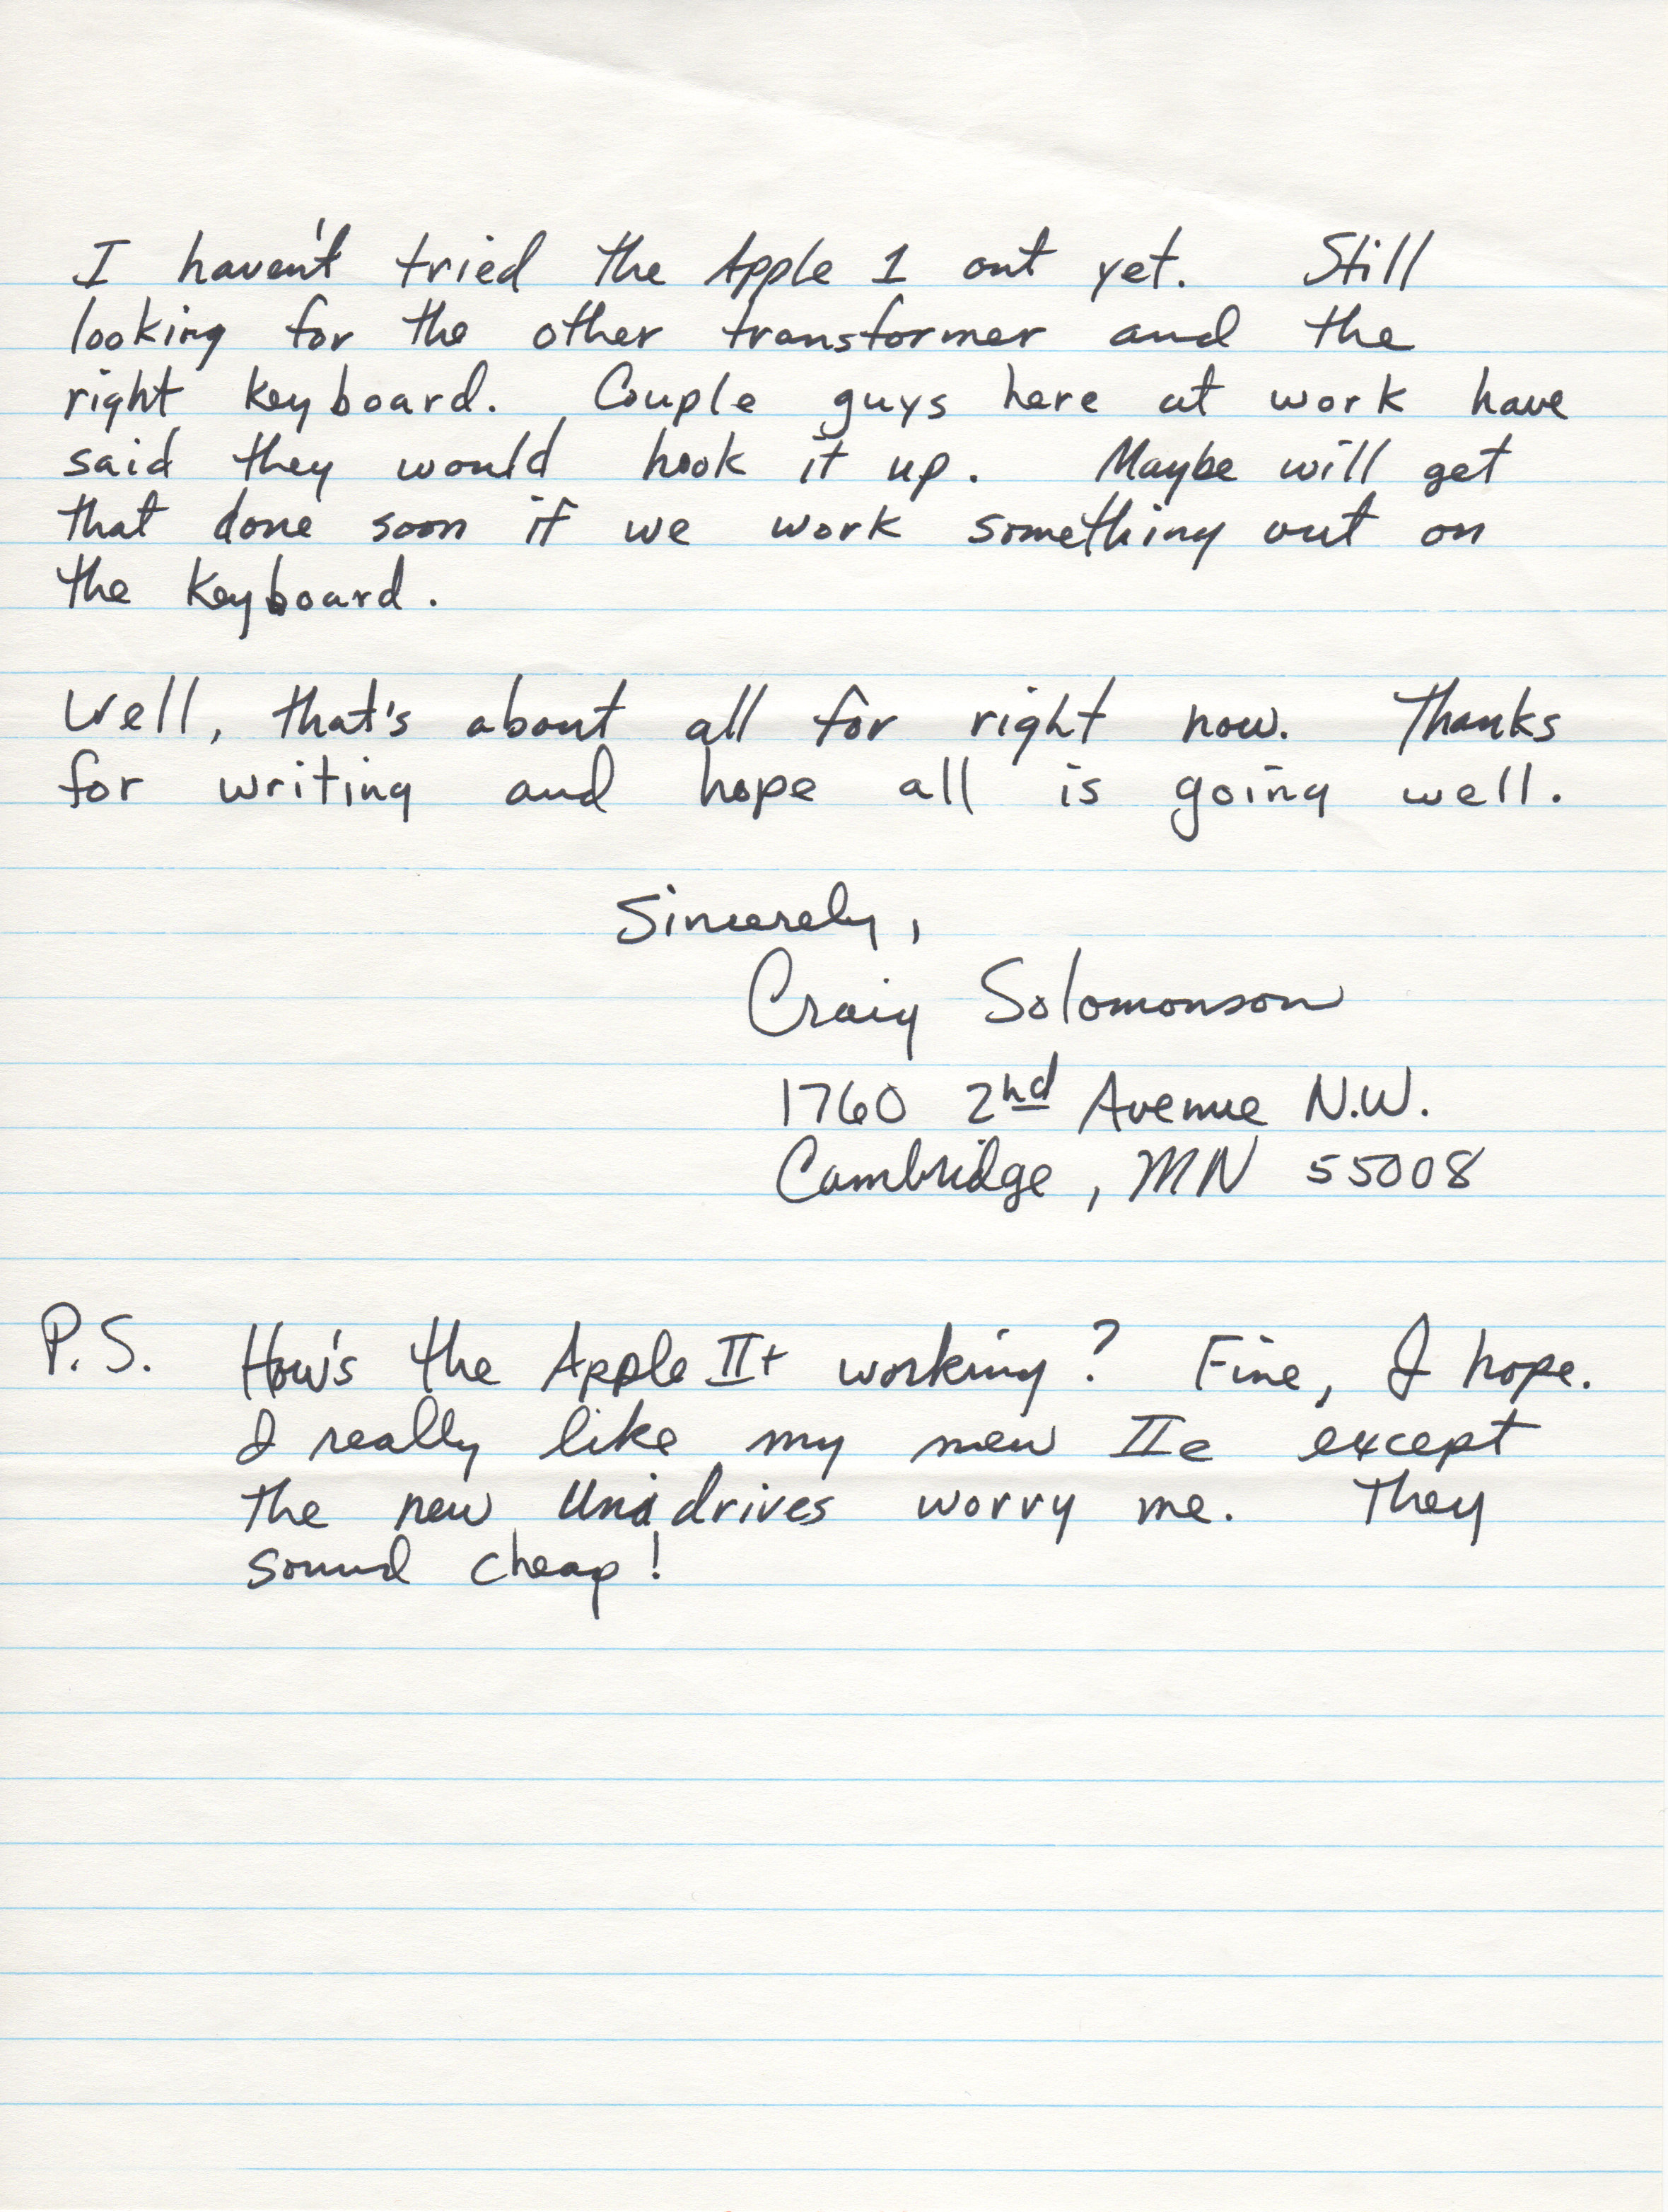 I haven't tried the Apple 1 out yet. Still
looking for the other transformer and the
right keyboard. Couple guys here at work have
said they would hook it up. Maybe will get
that done soon if we work something out on
the keyboard.
Well, that's about all for right now. Thanks
for writing and hope all is going well.
Sincerely,
Craig Solomonson
1760 2nd Avenue N.W.
Cambridge, MN 55008
P.S. How's the Apple II+ working? Fine, I hope.
I really like my new IIe except
the new Unidrives worry me. They
sound cheap!